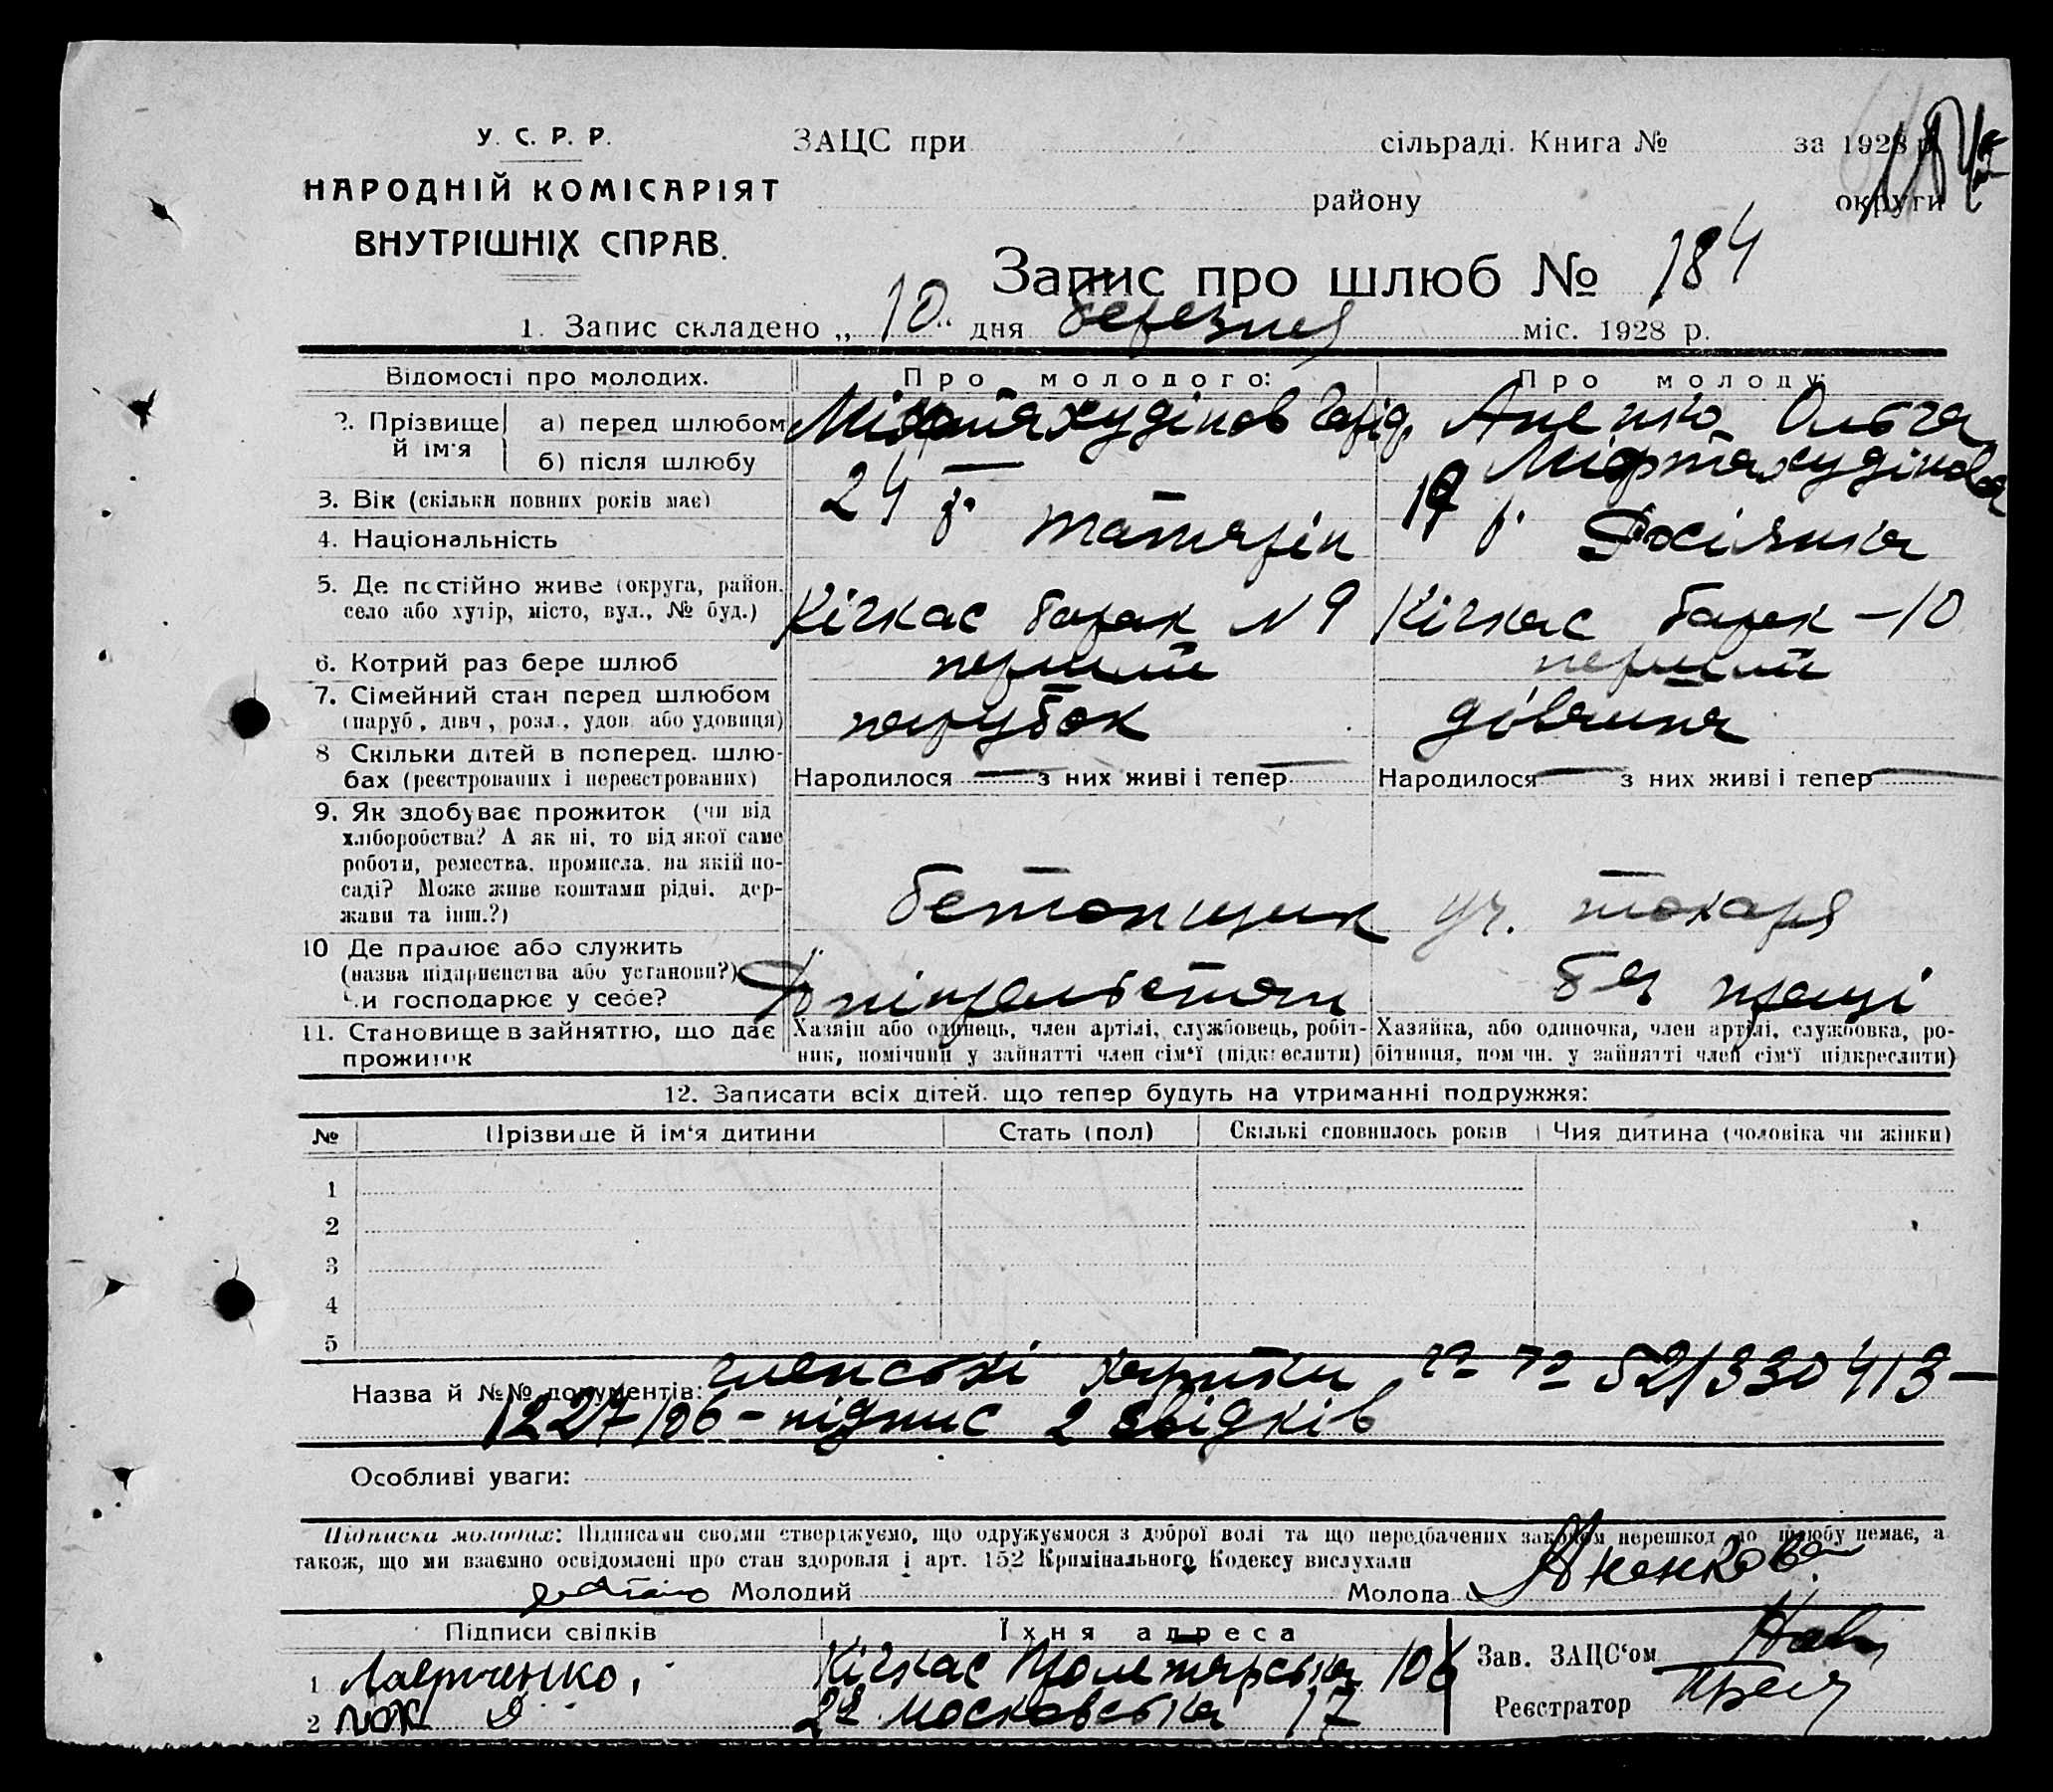 У. С. Р. Р.
НАРОДНІЙ КОМІСАРІЯТ
ВНУТРІШНІХ СПРАВ.
ЗАЦС при сільраді. Книга № за 1928 р.
району округи
Запис про шлюб № 184
1. Запис складено „10" дня березня міс. 1928 р.
Відомості про молодих. Про молодого: Про молоду:
2. Прізвище й ім'я
а) перед шлюбом Міфтяхудінов Ольга
б) після шлюбу — Міфтяхудінова
3. Вік (скільки повних років має) 24 р. р.
4. Національність татарін Росіянка
5. Де постійно живе (округа, район, село або хутір, місто, вул., № буд.) Кічкас барак № 9 Кічкас барак – 10
6. Котрий раз бере шлюб перший перший
7. Сімейний стан перед шлюбом (паруб., дівч., розл., удов. або удовиця) парубок дівчина
8 Скільки дітей в поперед. шлюбах (реєстрованих і нереєстрованих) Народилося — з них живі і тепер — Народилося — з них живі і тепер —
9. Як здобуває прожиток (чи від хліборобства? А як ні, то від якої саме роботи, ремества, промисла, на якій посаді? Може живе коштами рідні, держави та інш.?) бетонщик уч. токаря
10 Де працює або служить (назва підприємства або установи?) Чи господарює у себе? Дніпрельстан бя праці
11. Становище в зайняттю, що дає прожиток
Хазяїн або одинець, член артілі, службовець, робітник, помічний у зайнятті член сім'ї (підкреслити)
Хазяйка, або одиночка, член артілі, службовка, робітниця, помічн. у зайнятті член сім'ї підкреслити)
12. Записати всіх дітей, що тепер будуть на утриманні подружжя:
№ Прізвище й ім'я дитини Стать (пол) Скількі сповнилось років Чия дитина (чоловіка чи жінки)
1
2
3
4
5
Назва й №№ документів: членські картки 521330413 –
1227/106 – підпис 2 свідків
Особливі уваги:
Підписка молодих: Підписами своїми стверджуємо, що одружуємося з доброї волі та що передбачених законом перешкод до шлюбу немає, а
також, що ми взаємно освідомлені про стан здоровля і арт. 152 Кримінального Кодексу вислухали
Молодий Молода
Підписи свідків Їхня адреса
1 Кічкас Пролетарська 106
2 Московська 17
Зав. ЗАЦС'ом
Реєстратор